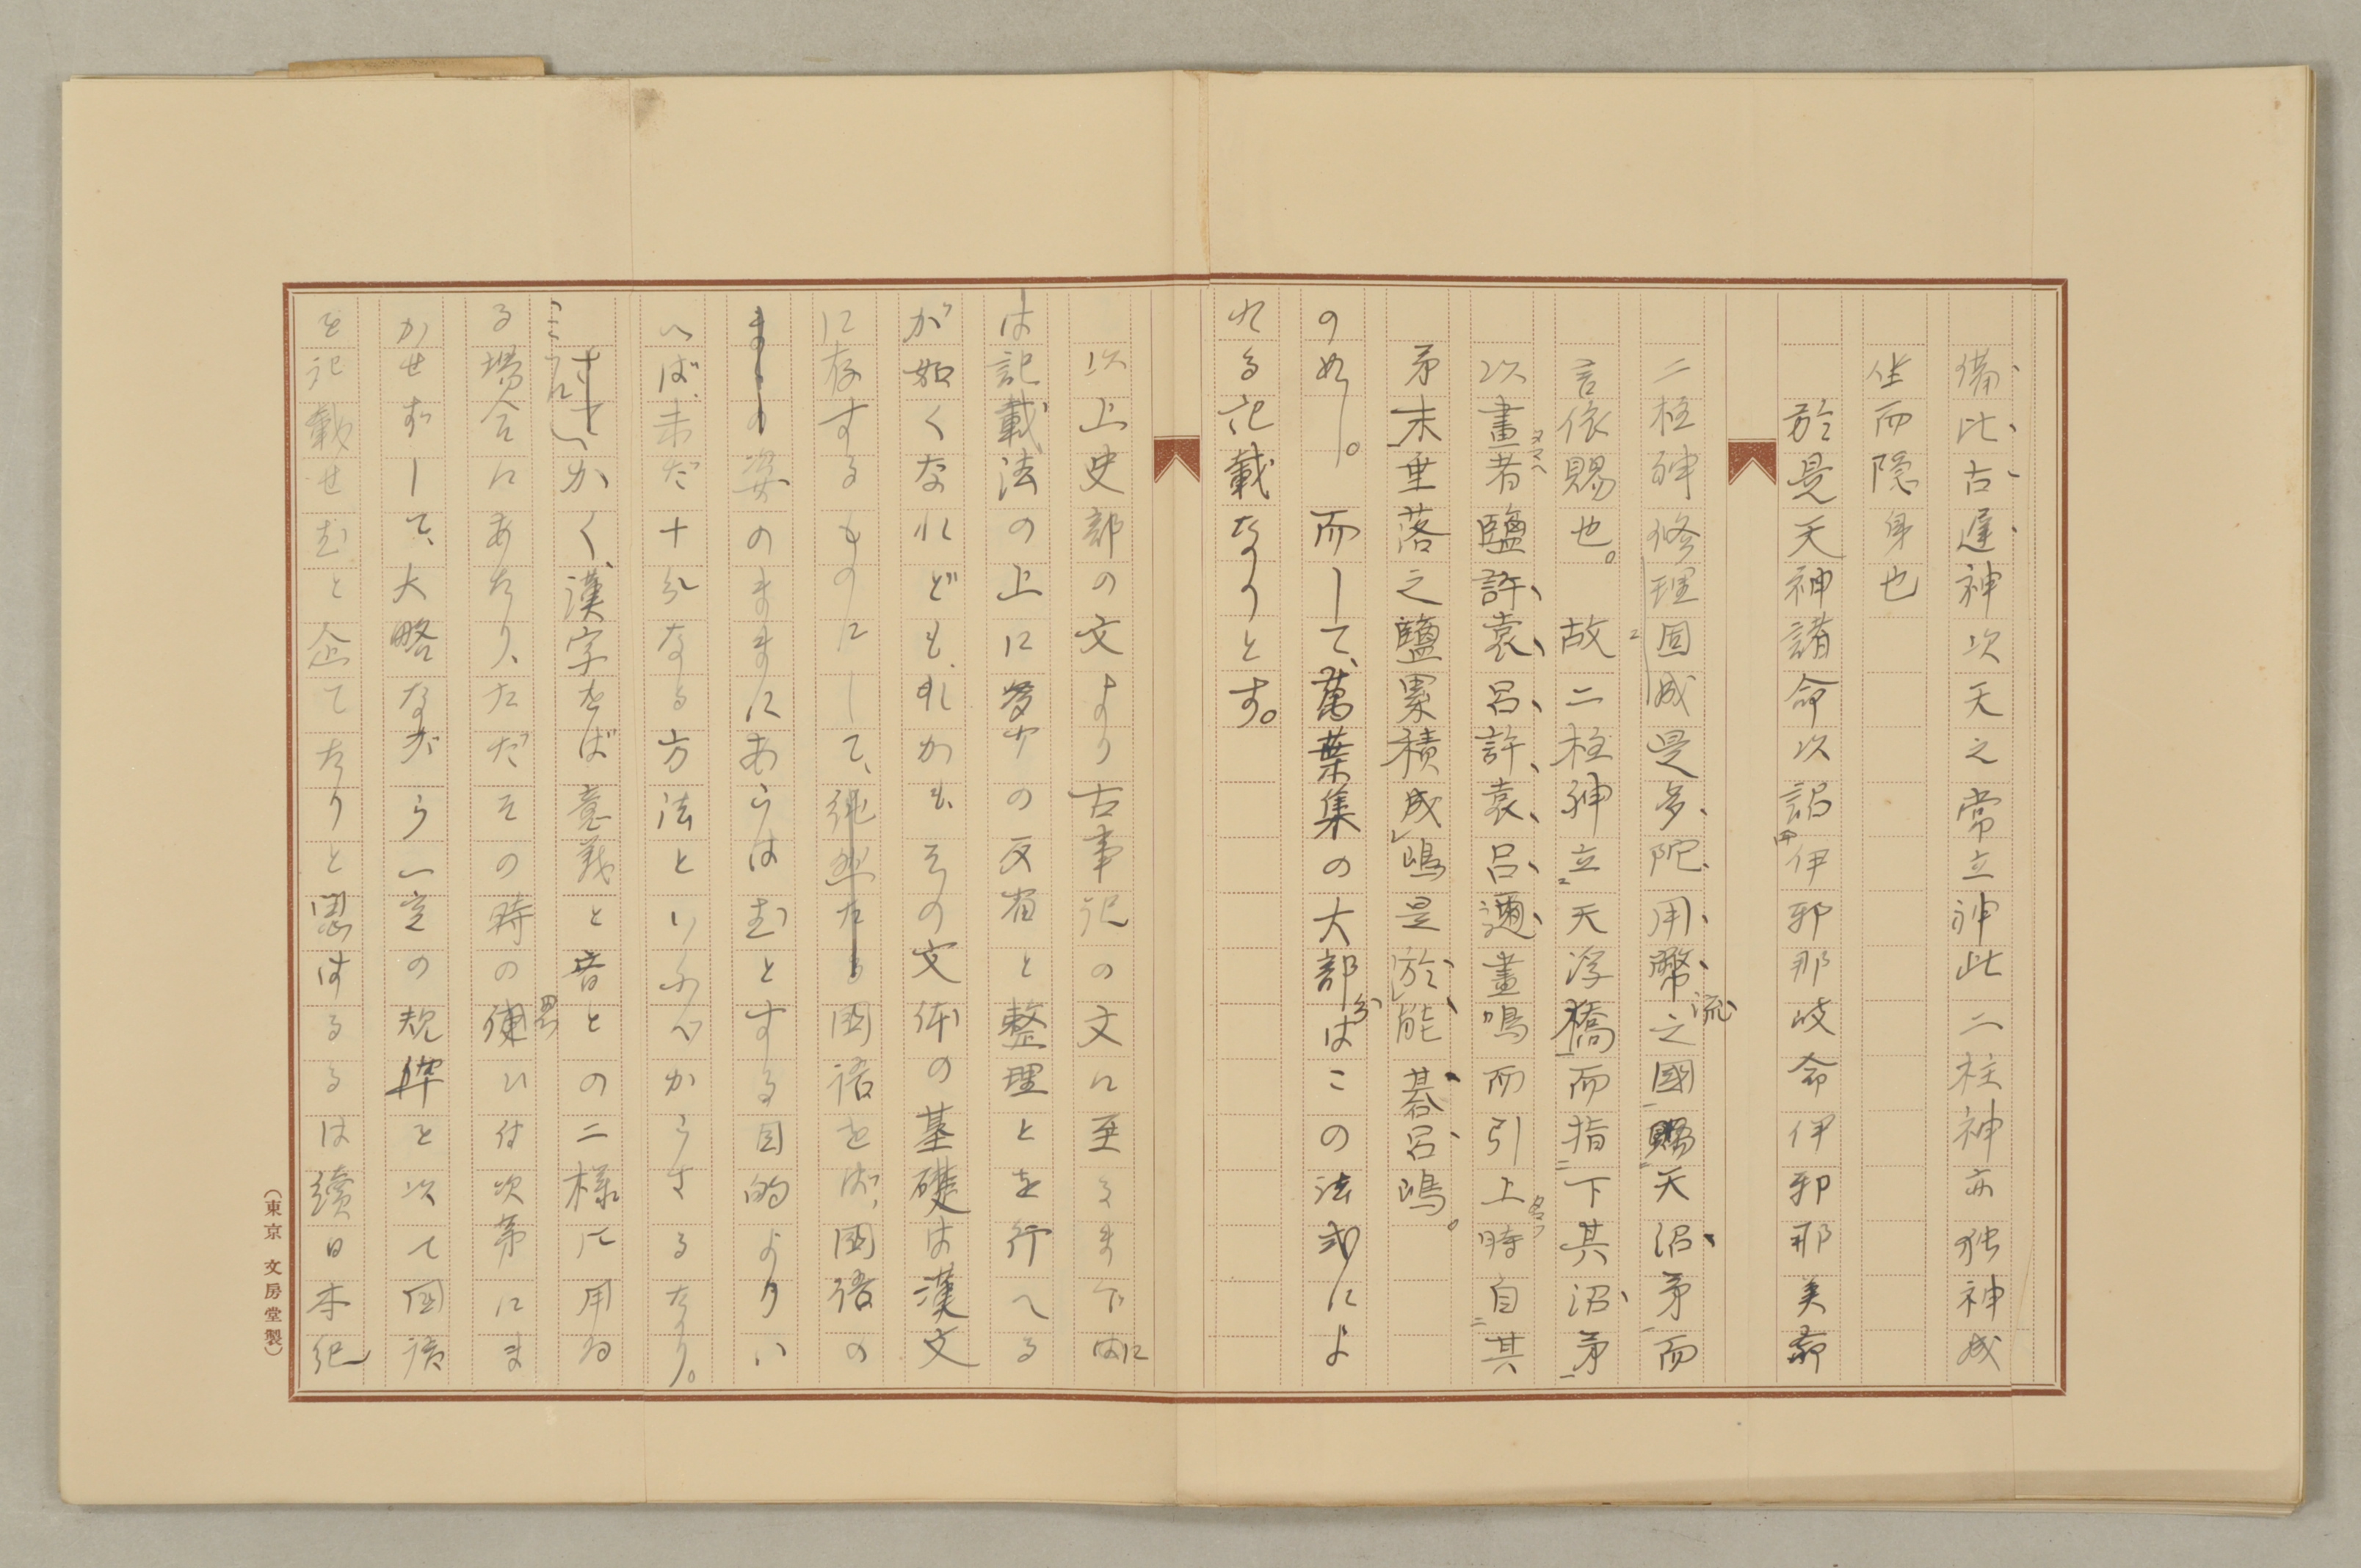 備比古遅神次天之常立神此二柱神亦独神成
坐而隠身也
於是天神諸命以詔伊邪那岐命伊邪那美命
二柱神修理固成是多陀用幣流之國賜天沼矛而
言依賜也。故二柱神立天浮橋而指下其沼矛
以畫者鹽許袁呂許袁呂邇畫鳴而引上時自其
矛末垂落之鹽累積成嶋是於能碁呂嶋。
の如し。而して、萬葉集の大部分はこの法式によ
れる記載なりとす。
以上史部の文より古事記の文に至るまでに
は記載法の上に多少の反省と整理とを行へる
が如くなれども、されかも、その文体の基礎は漢文
に存するものにして、純然たる國語をば、國語の
まゝの姿のままにあらはむとする目的よりい
へば、未だ十分なる方法といふべからざるなり。
かく、漢字をば意義と音との二様に用ゐ
る場合にあたり、ただその時の便ひは次第にま
かせずして、大略ながら一定の規律を以て國語
を記載せむと企てたりと思はるるは續日本紀
(東京 文房堂製)